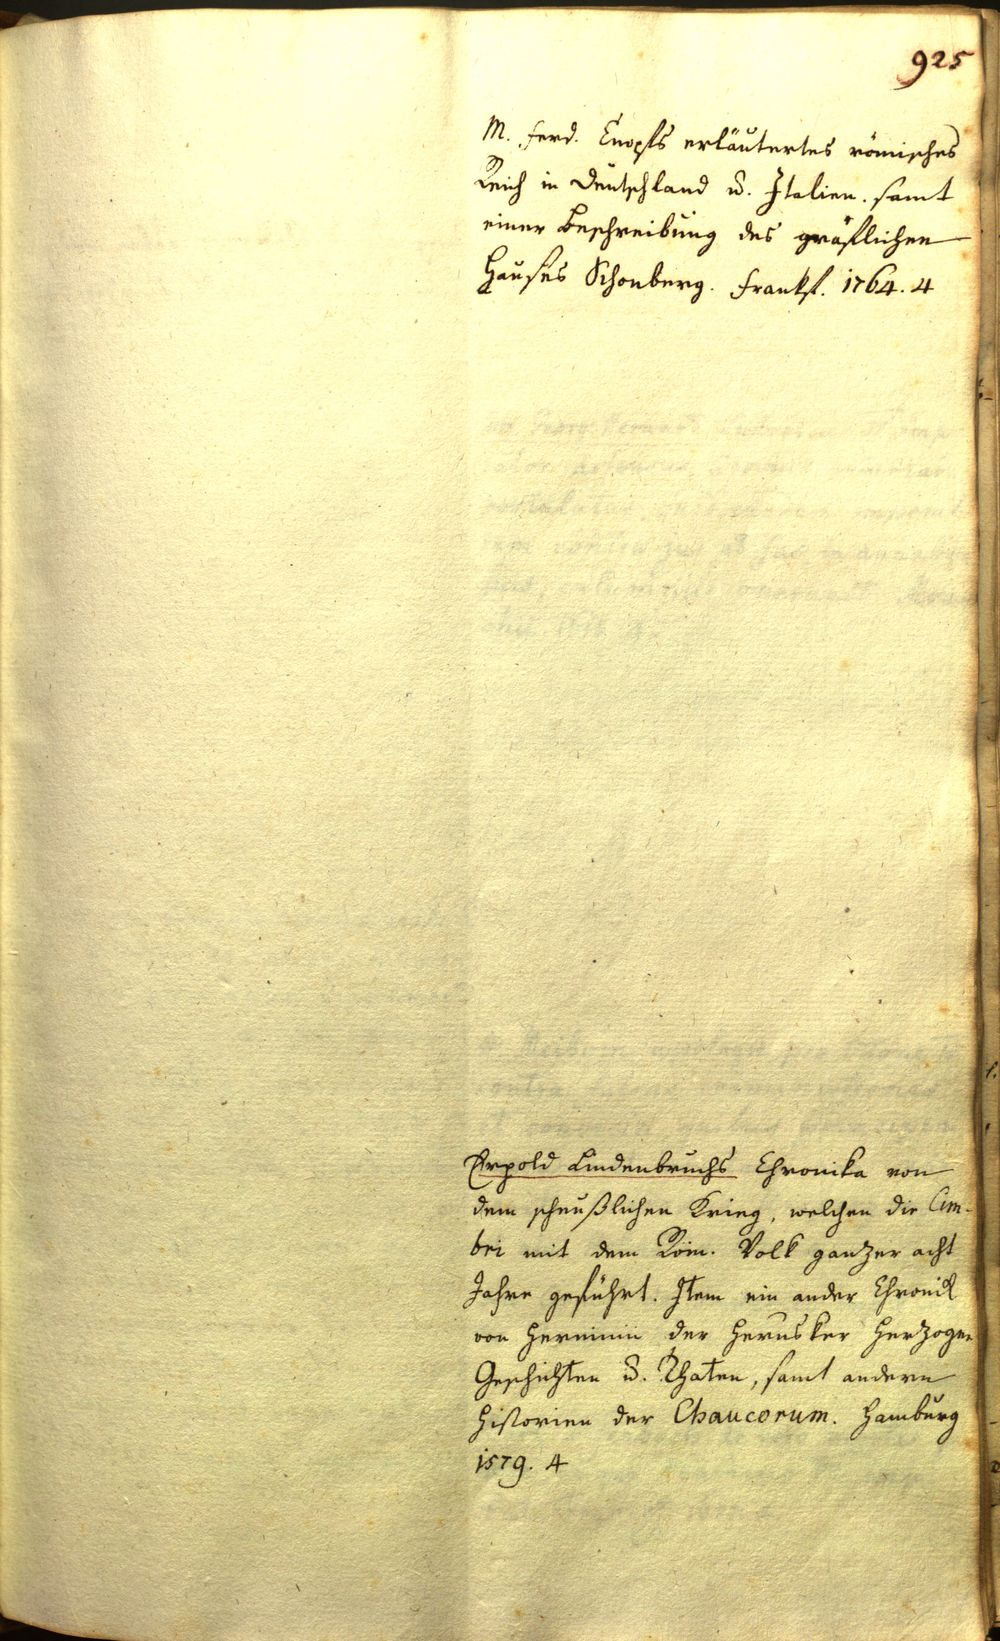 925
M. Ferd. Knopfs erläutertes römisches
Reich in Deutschland u. Italien. samt
einer Beschreibung des gräflichen
Hauses Schönberg. Frankf. 1764. 4
Erpold Lindenbruchs Chronika von
dem scheußlichen Krieg, welchen die Cim-
bri mit dem Röm. Volk ganzer acht
Jahre geführt. Item ein ander Chronick
von Herminii der Herusker Herzogen
Geschichten u. Thaten, samt andern
Historien der Chaucorum. Hamburg
1579. 4